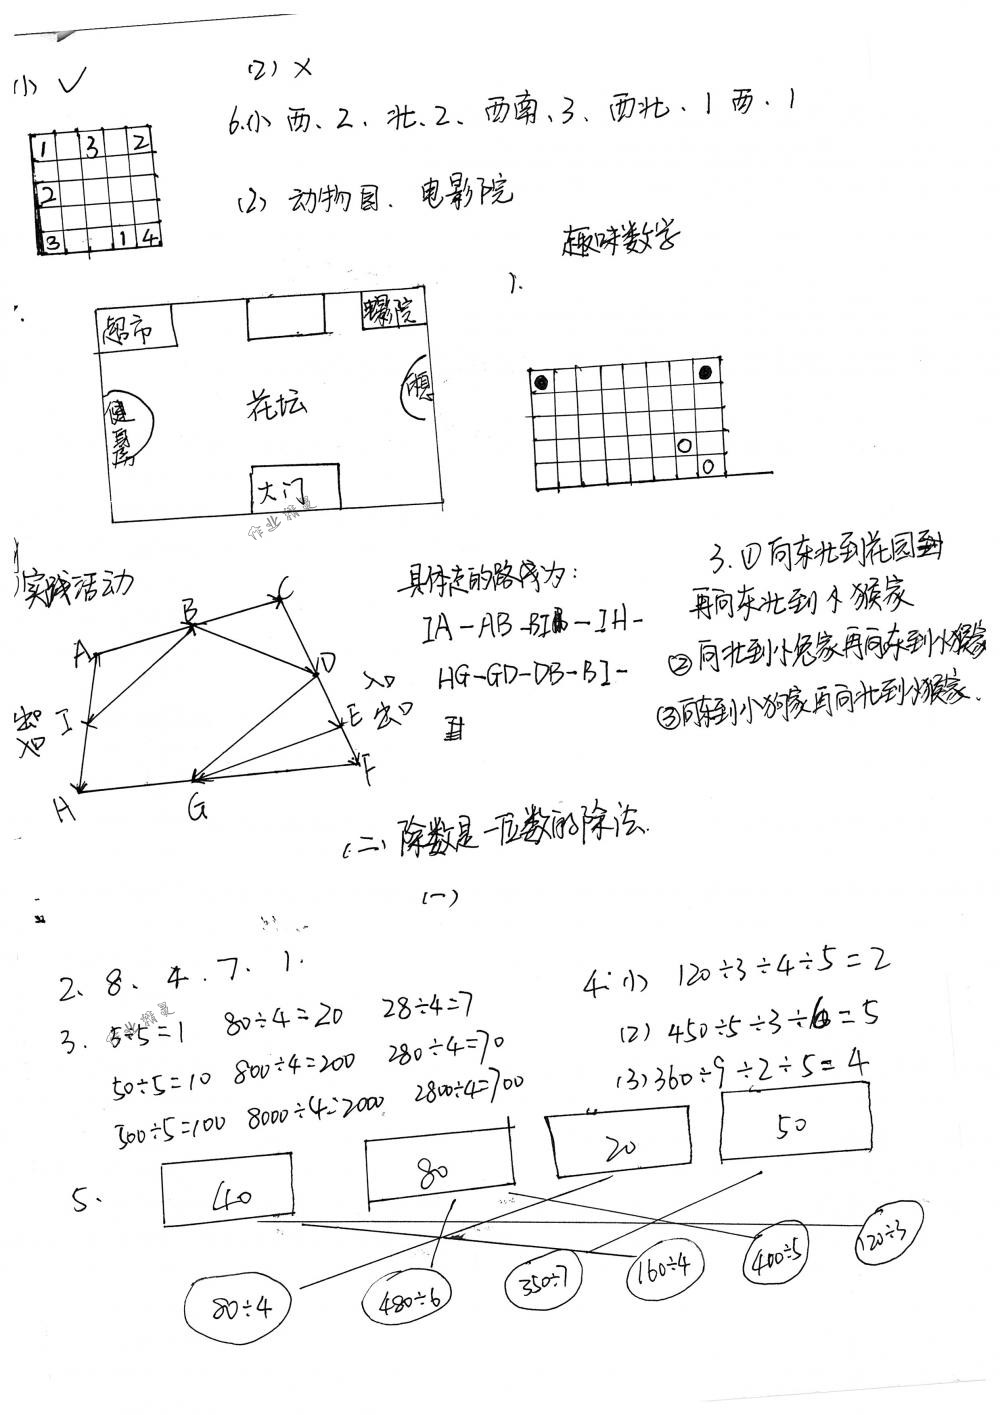 (1) ✓
(2) ×
6.(1) 西、2、北、2、西南、3、西北、1 西、1
1 3 2
2
3 1 4
(2) 动物园、电影院
趣味数学
1.
超市
花坛
健身房
大门
作业精灵
实践活动
A B C D E F G H I
出口
入口
入口
出口
具体走的路线为:
IA-AB-BI-IH-
HG-GD-DB-BI-
3.①向东北到花园
再向东北到小猴家
②向北到小兔家再向东到小猴家
③向东到小狗家再向北到小猴家.
(二)除数是一位数的除法.
(一)
2、8、4、7、1.
作业精灵
3. 5÷5=1 80÷4=20 28÷4=7
50÷5=10 800÷4=200 280÷4=70
500÷5=100 8000÷4=2000 2800÷4=700
4.(1) 120÷3÷4÷5=2
(2) 450÷5÷3÷6=5
(3) 360÷9÷2÷5=4
5、
40 80 20 50
80÷4 480÷6 350÷7 160÷4 400÷5 120÷3